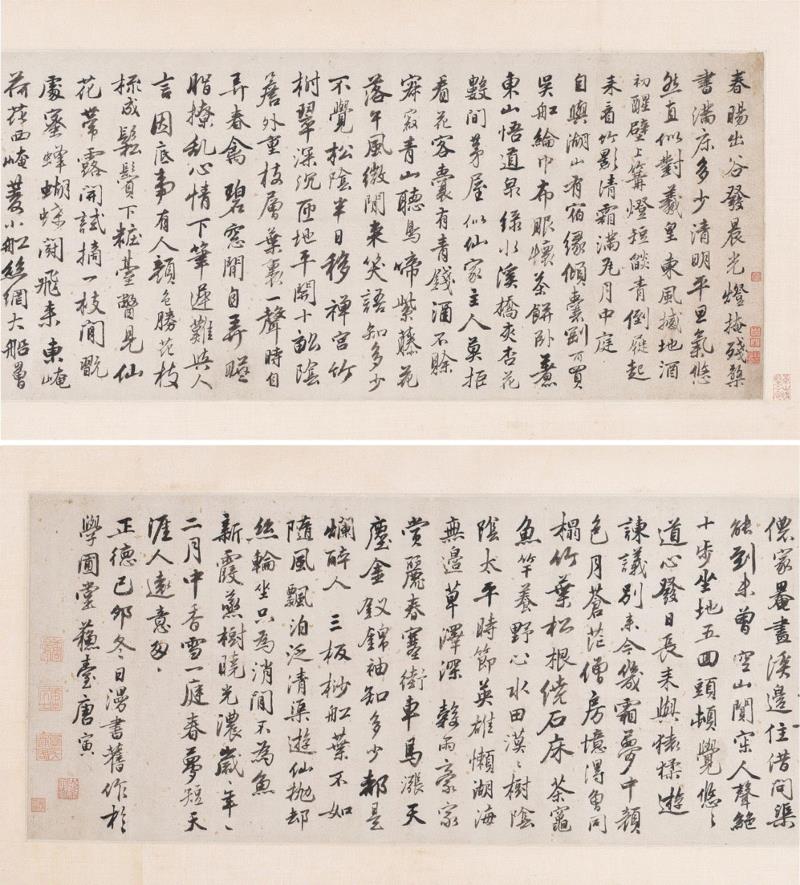 春暘出谷發晨光燈掩殘檠
書滿床多少清明平旦氣悠
然直似對羲皇東風撼地酒
初醒壁上篝燈短燄青倒屣起
来看竹影清霜滿瓦月中庭
自與湖山有宿緣傾囊剛可買
吳舩綸巾布服懷茶餅卧煮
東山悟道泉綠水溪橋夾杏花
數間茅屋似仙家主人莫拒
看花客囊有青錢酒不賒
寂寂青山聽鳥啼紫藤花
落午風微閒来笑語知多少
不覺松陰半日移禪宮竹
樹翠深沉匝地平閑十畝陰
簷外重枝層葉裏一聲時自
弄春禽碧窓閒自弄臙
脂撩乱心情下筆遲難與人
言因底事有人顏色勝花枝
梳成鬆鬢下粧臺瞥見仙
花帶露開試摘一枝閒戲
處蜜蜂蝴蝶鬭飛来東崦
荷花西崦菱小舩絲網大船罾
儂家罨畫溪邊住借問渠
能到未曽空山闃寂人聲絶
十步坐地五回頭頓覺悠〻
道心發日長来與猿猱遊
諫議別来今幾霜夢中顏
色月蒼茫僧房憶得曽同
榻竹葉松根繞石床茶竈
魚竿養野心水田漠〻樹陰
陰太平時節英雄懶湖海
無邊草澤深穀雨豪家
赏麗春塞街車馬漲天
塵金釵錦袖知多少都是
爛醉人三板桫舩葉不如
隨風飄泊泛清渠遊仙抛却
絲輪坐只為消閒不為魚
新霞蒸樹曉光濃歲年〻
二月中香雪一庭春夢短天
涯人遠意匆〻
正德己卯冬日漫書舊作於
學圃堂蘓臺唐寅